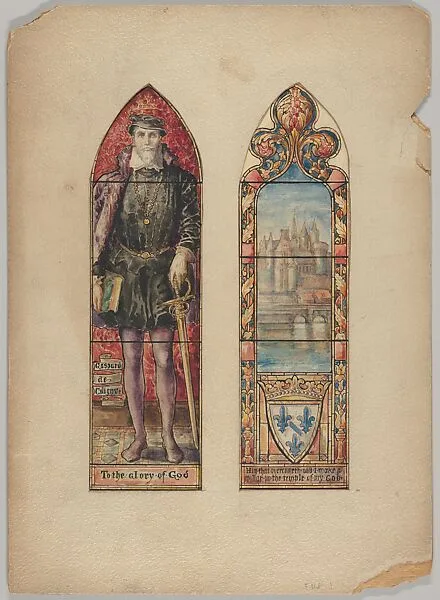 Gaspard
de
Coligny
To the glory of God
Him that overcometh will I make a
pillar in the temple of my God